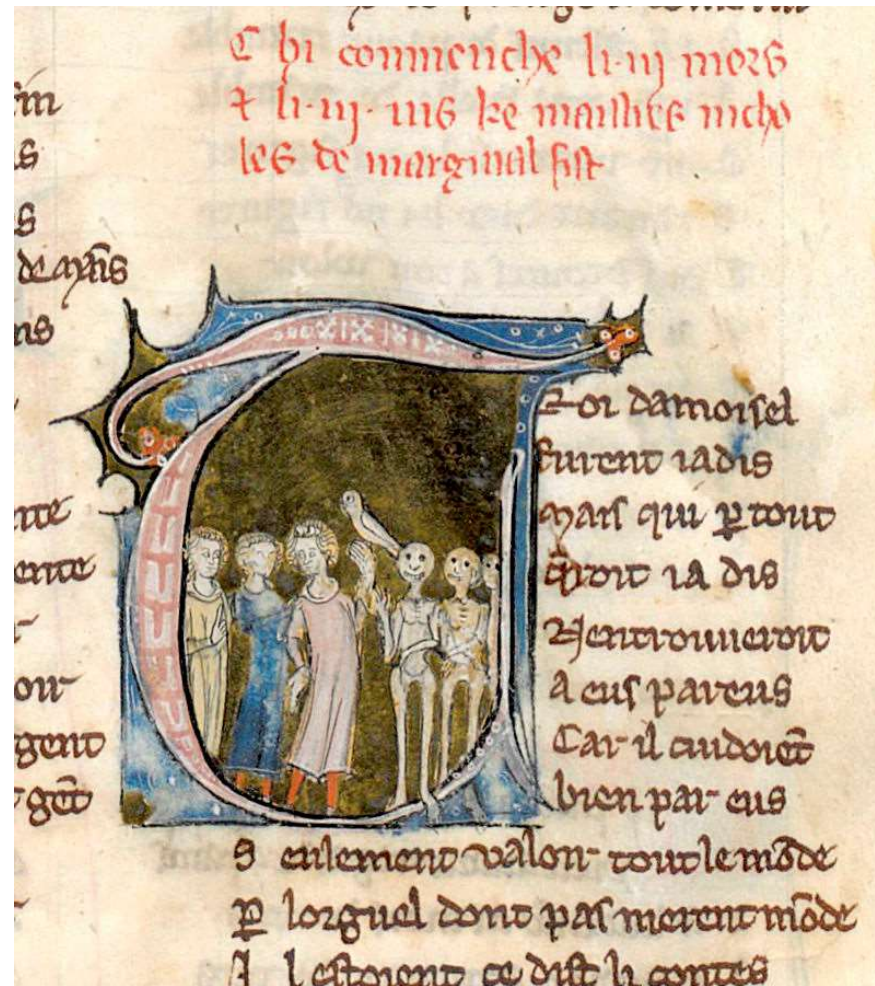 C hi conmenche li·iij mors
⁊ li·iij·uis ke maistres nicho
les de marginal fist
T Roi damoisel
furent iadis
Mais qui ꝑ tout
iroit ia dis
N entrouueroit
A eus pareus
Car il cuidoiēt
bien par eus
S eulement valoir tout le mōde
ꝑ lorguel dont pas nierent mōde
I l estoient ce dist li contes
ente
ente
oir
gent
gēt